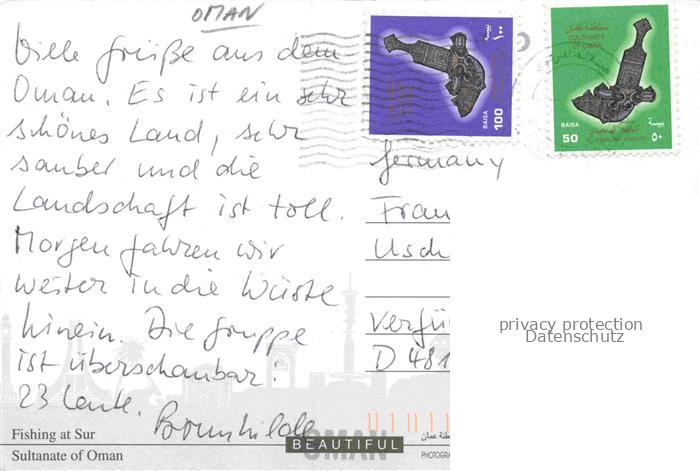 OMAN
Viele Grüße aus dem
Oman. Es ist ein sehr
schönes Land, sehr
sauber und die
Landschaft ist toll.
Morgen fahren wir
weiter in die Wüste
hinein. Die Gruppe
ist überschaubar:
23 Leute. Brunhilde
Fishing at Sur
Sultanate of Oman
BEAUTIFUL
OMAN
PHOTOGRA
BAISA
100
بيسة
١٠٠
سلطنة عمان
SULTANATE
OF OMAN
BAISA
50
بيسة
٥٠
Germany
Frau
Usch
Verfü
D 481
privacy protection
Datenschutz